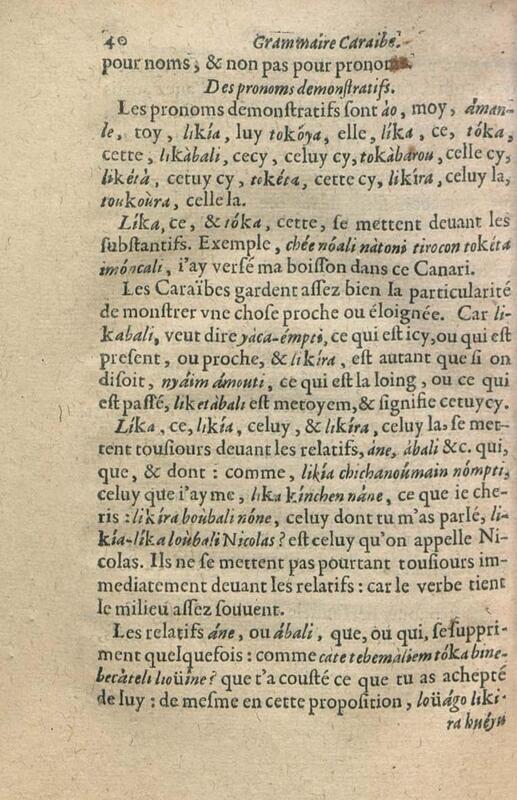 40 Grammaire Caraibe.
pour noms, & non pas pour pronoms.
Des pronoms demonſtratifs.
Les pronoms demonſtratifs ſont áo, moy, áman-
le, toy, likía, luy tokóya, elle, líka, ce, tóka,
cette, likàbali, cecy, celuy cy, tokàbarou, celle cy,
likétà, cetuy cy, tokéta, cette cy, likíra, celuy la,
toukoùra, celle la.
Líka, ce, & tóka, cette, ſe mettent deuant les
ſubſtantifs. Exemple, chée nóali nàtoni tirocon tokéta
imóncali, i'ay verſé ma boiſſon dans ce Canari.
Les Caraïbes gardent aſſez bien la particularité
de monſtrer vne choſe proche ou éloignée. Car li-
kabali, veut dire yàca-émpti, ce qui eſt icy, ou qui eſt
preſent, ou proche, & likíra, eſt autant que ſi on
diſoit, nyáim ámouti, ce qui eſt la loing, ou ce qui
eſt paſſé, liketàbali eſt metoyem, & ſignifie cetuycy.
Líka, ce, likía, celuy, & likíra, celuy la, ſe met-
tent touſiours deuant les relatifs, áne, àbali &c. qui,
que, & dont : comme, likía chichanoúmain nómpti,
celuy que i'ayme, lika kínchen náne, ce que ie che-
ris : likíra boùbali nóne, celuy dont tu m'as parlé, li-
kía-líka loùbali Nicolas ? eſt celuy qu'on appelle Ni-
colas. Ils ne ſe mettent pas pourtant touſiours im-
mediatement deuant les relatifs : car le verbe tient
le milieu aſſez ſouuent.
Les relatifs áne, ou ábali, que, ou qui, ſe ſuppri-
ment quelquefois : comme cate tebemáliem tóka bine-
becàteli lioüine ? que t'a couſté ce que tu as achepté
de luy : de meſme en cette propoſition, loüágo liki-
ra huéyu